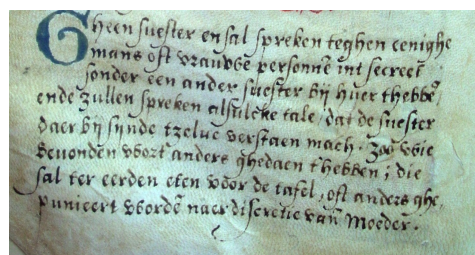 Gheen suester en sal spreken teghen eenighe
mans oft vrauwe personnē int secreet
sonder een ander suester bij huer thebbē,
ende zullen spreken alsulcke tale, dat de suester
daer bij sijnde tzelue verstaen mach. Zoo wie
beuonden wort anders ghedaen thebben; die
sal ter eerden eten voor de tafel, oft anders ghe,
punieert wordē naer discretie van Moeder.